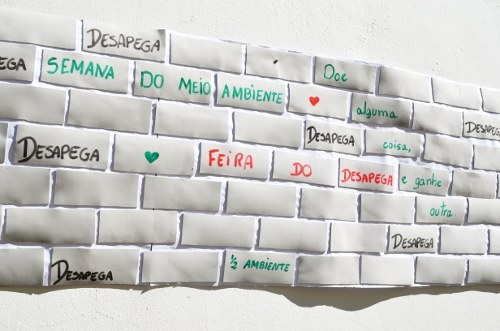 DESAPEGA
DESAPEGA
SEMANA DO MEIO AMBIENTE ♥
Doe
alguma
coisa,
e ganhe
outra
DESAPEGA
DESAPEGA
DESAPEGA ♥ FEIRA DO DESAPEGA
DESAPEGA
DESAPEGA
½ AMBIENTE